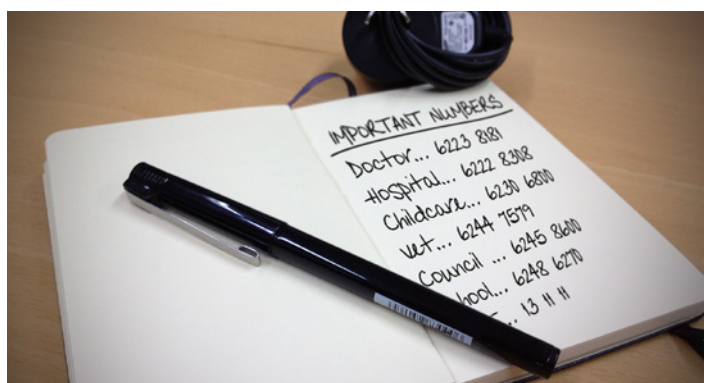 IMPORTANT NUMBERS
Doctor... 6223 8181
Hospital... 6222 8308
Childcare... 6230 6800
vet... 6244 7579
Council ... 6245 8600
hool... 6248 6270
.. 13 11 11